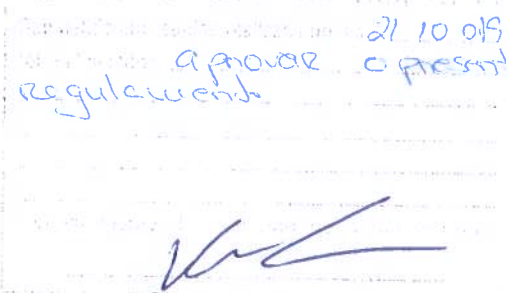 21 10 019
aprovar o present
regulamento